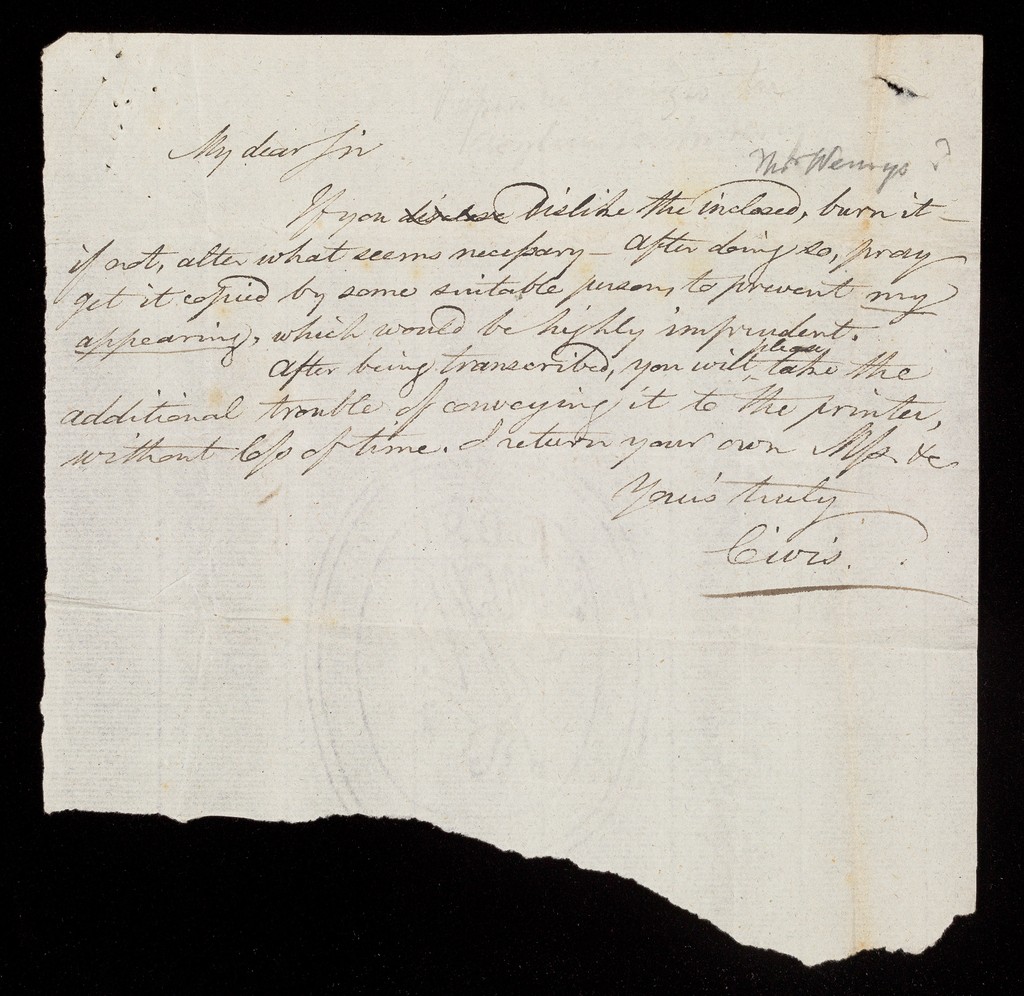 My dear Sir
Mr Wemys ?
If you disclose Dislike the inclosed, burn it —
if not, alter what seems necessary — After doing so, pray
get it copied by some suitable person, to prevent my
appearing, which would be highly imprudent.
After being transcribed, you will please take the
additional trouble of conveying it to the printer,
without loss of time. I return your own Mss. &c
Your's truly
Civis.